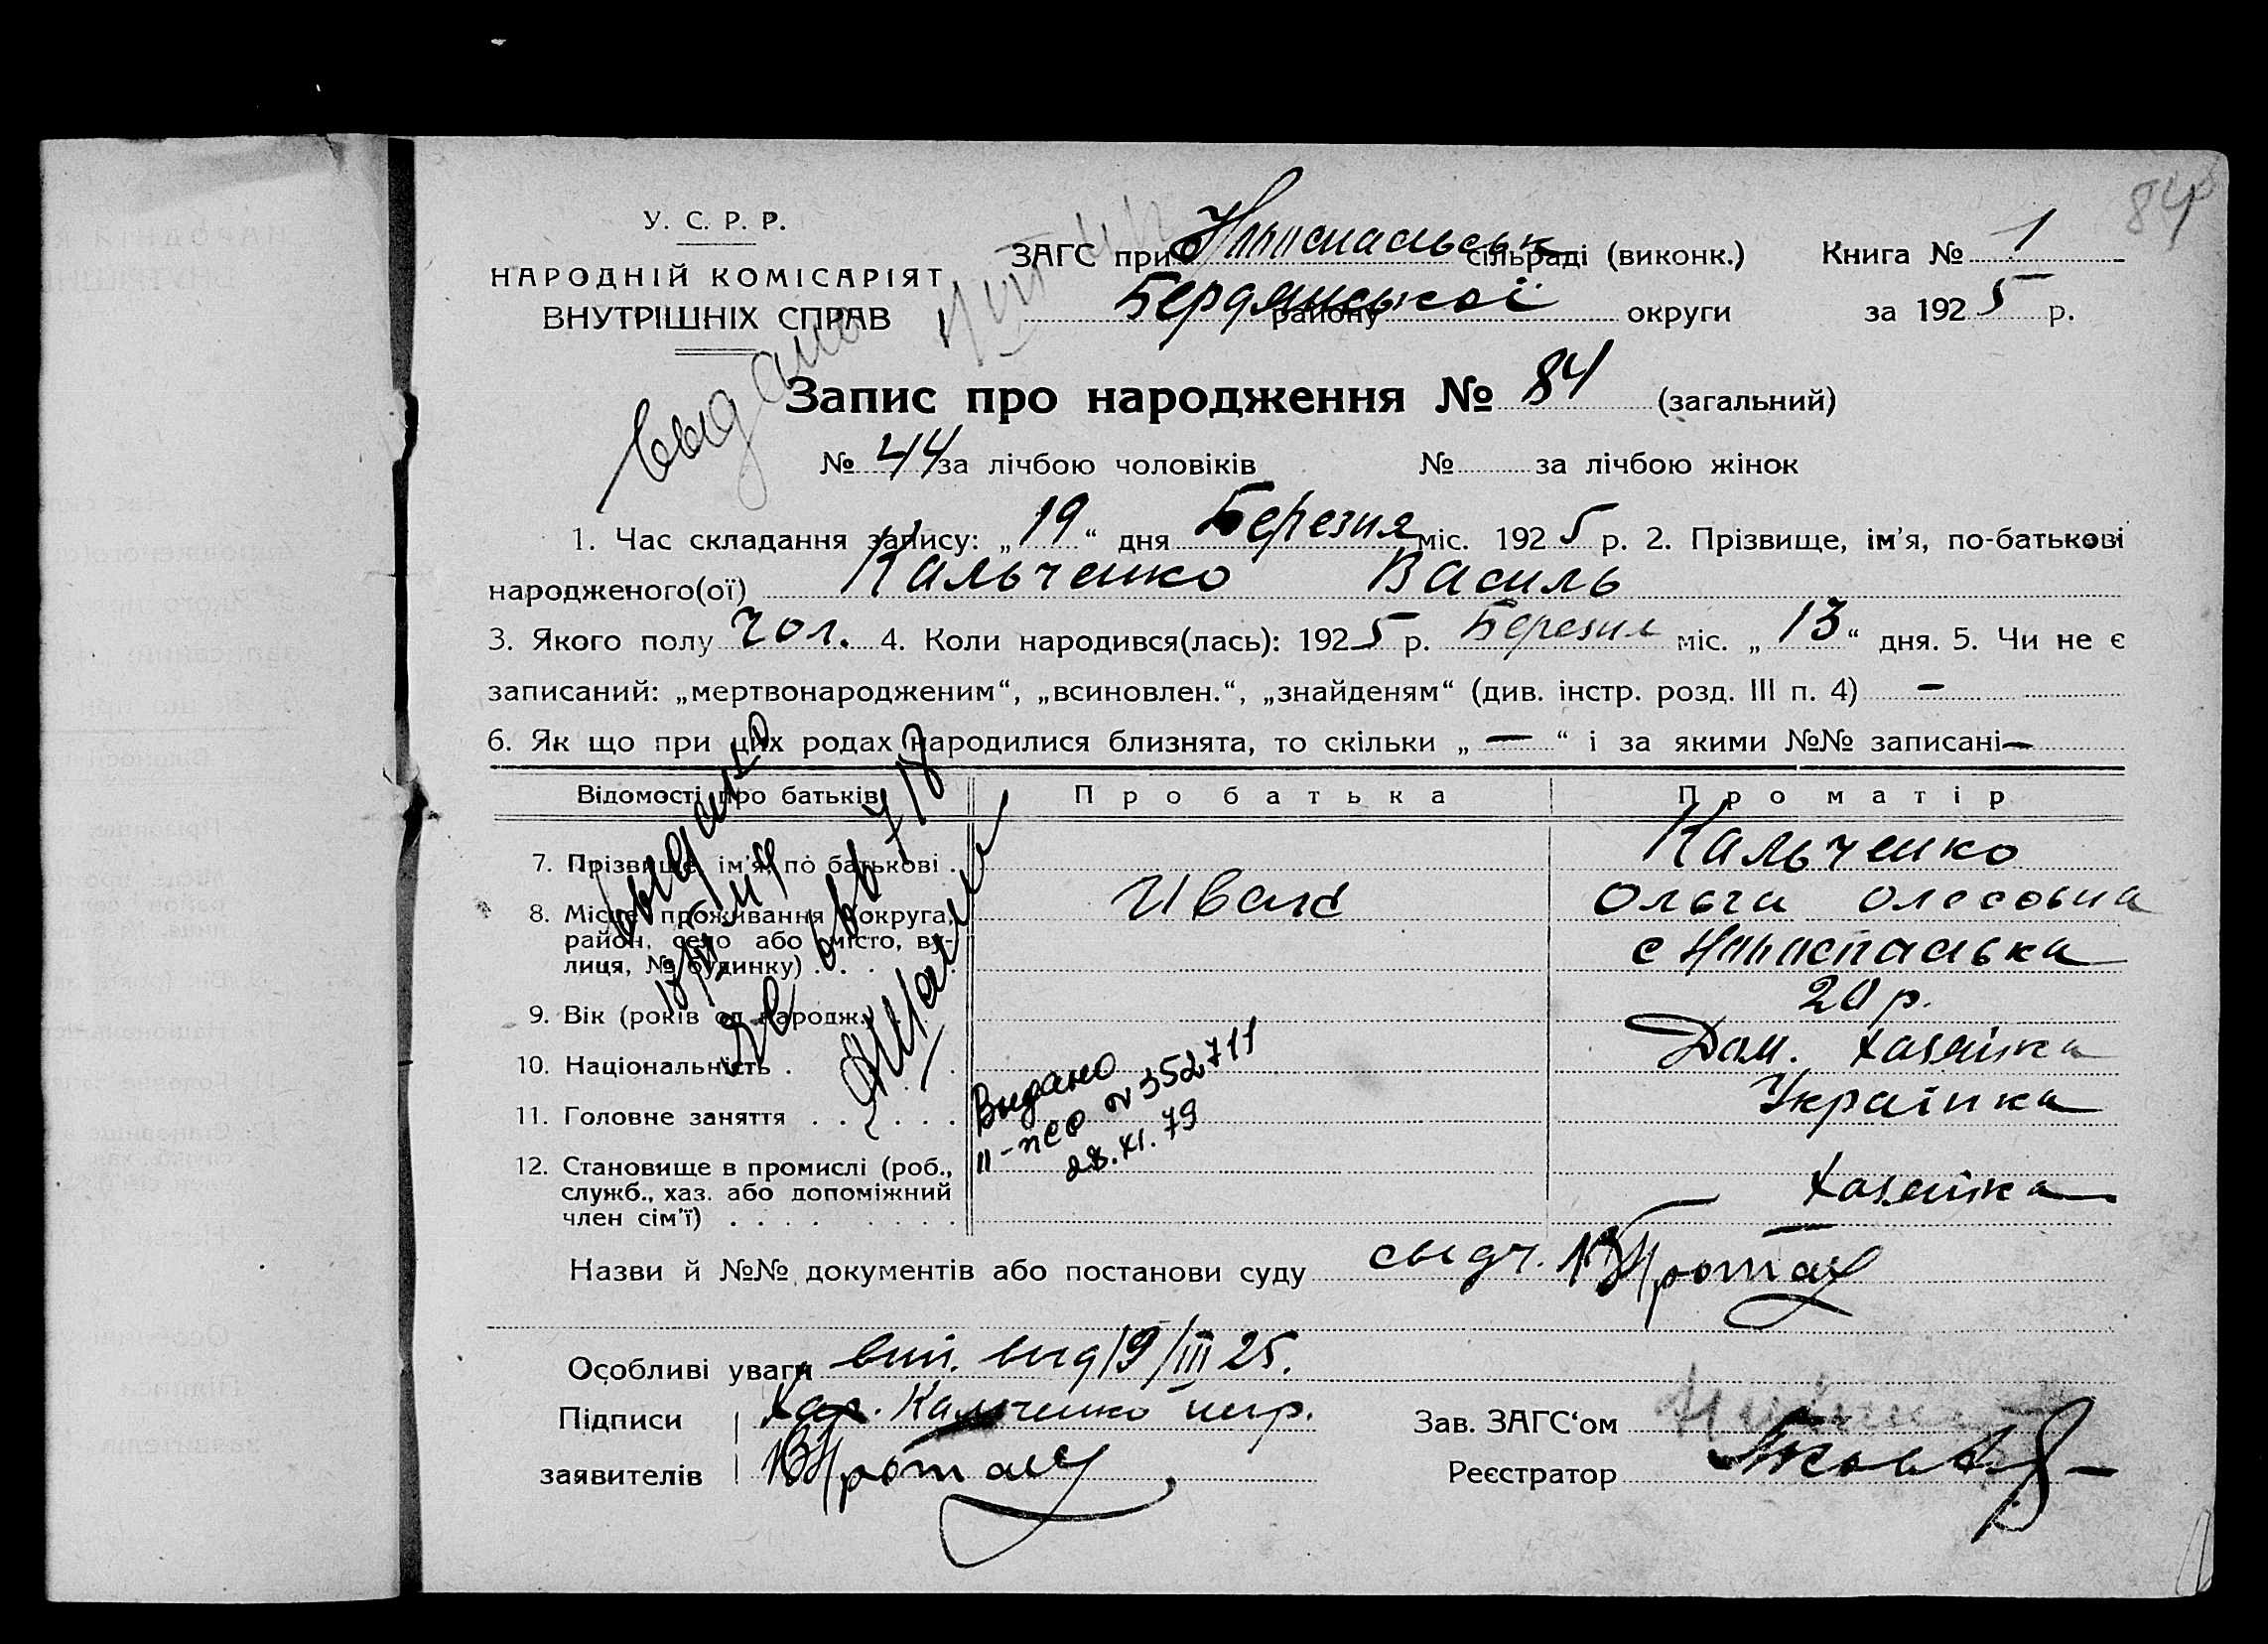 84
У. С. Р. Р.
НАРОДНІЙ КОМІСАРІЯТ
ВНУТРІШНІХ СПРАВ
ЗАГС при сільраді (виконк.) Книга № 1
Бердянської району округи за 1925 р.
Запис про народження № 84 (загальний)
№ 44 за лічбою чоловіків № за лічбою жінок
1. Час складання запису: „19“ дня Березня міс. 1925 р. 2. Прізвище, ім'я, по-батькові
народженого(ої) Кальченко Василь
3. Якого полу чол. 4. Коли народився(лась): 1925 р. Березня міс. „13“ дня. 5. Чи не є
записаний: „мертвонародженим“, „всиновлен.“, „знайденям“ (див. інстр. розд. III п. 4) —
6. Як що при цих родах народилися близнята, то скільки „—“ і за якими №№ записані —
Відомості про батьків Про батька Про матір
7. Прізвище, ім'я, по батькові . Кальченко
Иван Ольга
8. Місце проживання (округа,
район, село або місто, ву-
лиця, № будинку) . . с
9. Вік (років од народж.) 20 р.
10. Національність . Дом. хазяйка
11. Головне заняття . . . . . . Українка
12. Становище в промислі (роб.,
служб., хаз. або допоміжний
член сім'ї) . . . . Хазяйка
выдано
выдано
Выдано
II-ЖС № 352711
28.XI.79
Назви й №№ документів або постанови суду
Особливі уваги вип. выд 19/III 25.
Підписи Кальченко негр.
заявителів
Зав. ЗАГС‘ом
Реєстратор